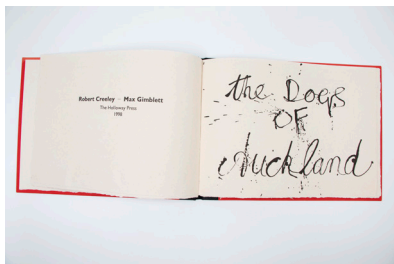 Robert Creeley - Max Gimblett
The Holloway Press
1998
the Dogs
OF
Auckland